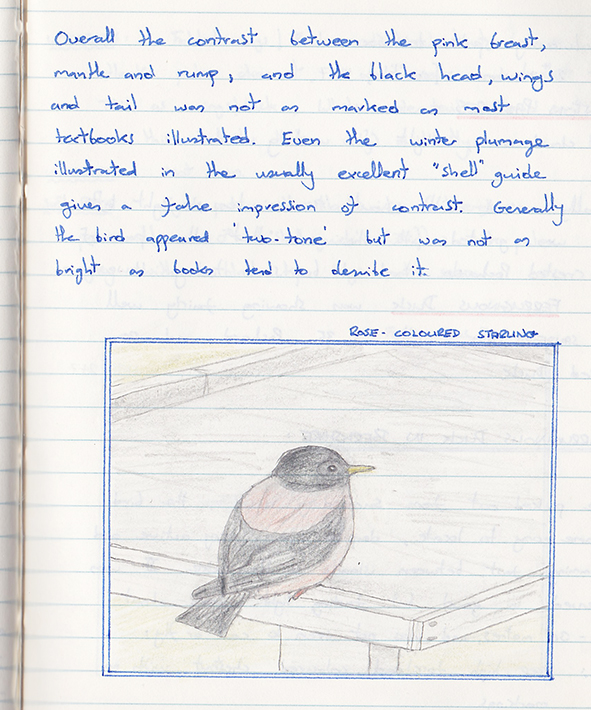 Overall the contrast between the pink breast,
mantle and rump, and the black head, wings
and tail was not as marked as most
textbooks illustrated. Even the winter plumage
illustrated in the usually excellent "shell" guide
gives a false impression of contrast. Generally
the bird appeared 'two-tone' but was not as
bright as books tend to describe it.
ROSE-COLOURED STARLING